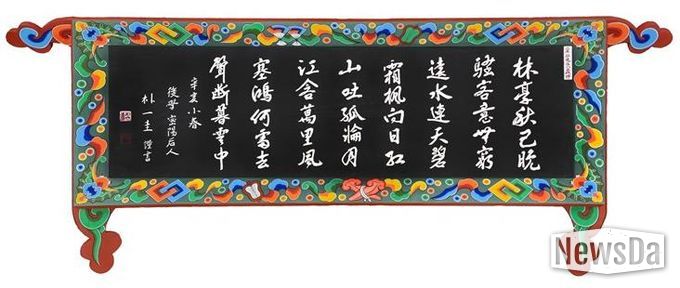 林亭秋已晩
騷客意無窮
遠水連天碧
霜楓向日紅
山吐孤輪月
江含萬里風
塞鴻何處去
聲斷暮雲中
辛亥小春
後學 密陽后人
朴一圭 謹書
NewsDa